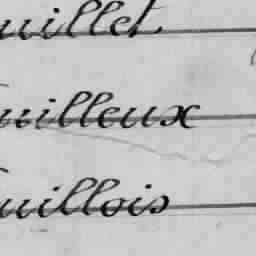 uillet
uilleux
uillois